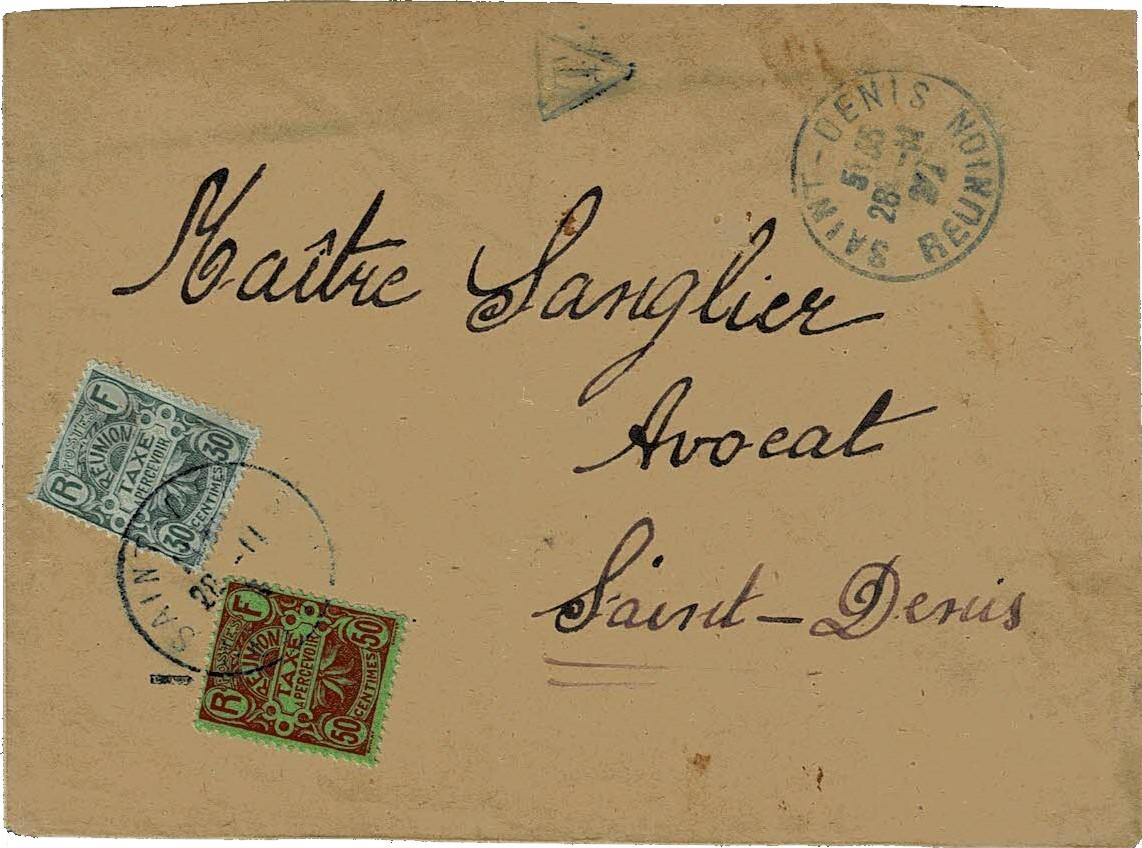 T
SAINT-DENIS REUNION
28
Maître Sanglier
Avocat
Saint-Denis
POSTES
R F
REUNION
TAXE
A PERCEVOIR
30 CENTIMES 30
SAINT
28 -11
POSTES
R F
REUNION
TAXE
A PERCEVOIR
50 CENTIMES 50